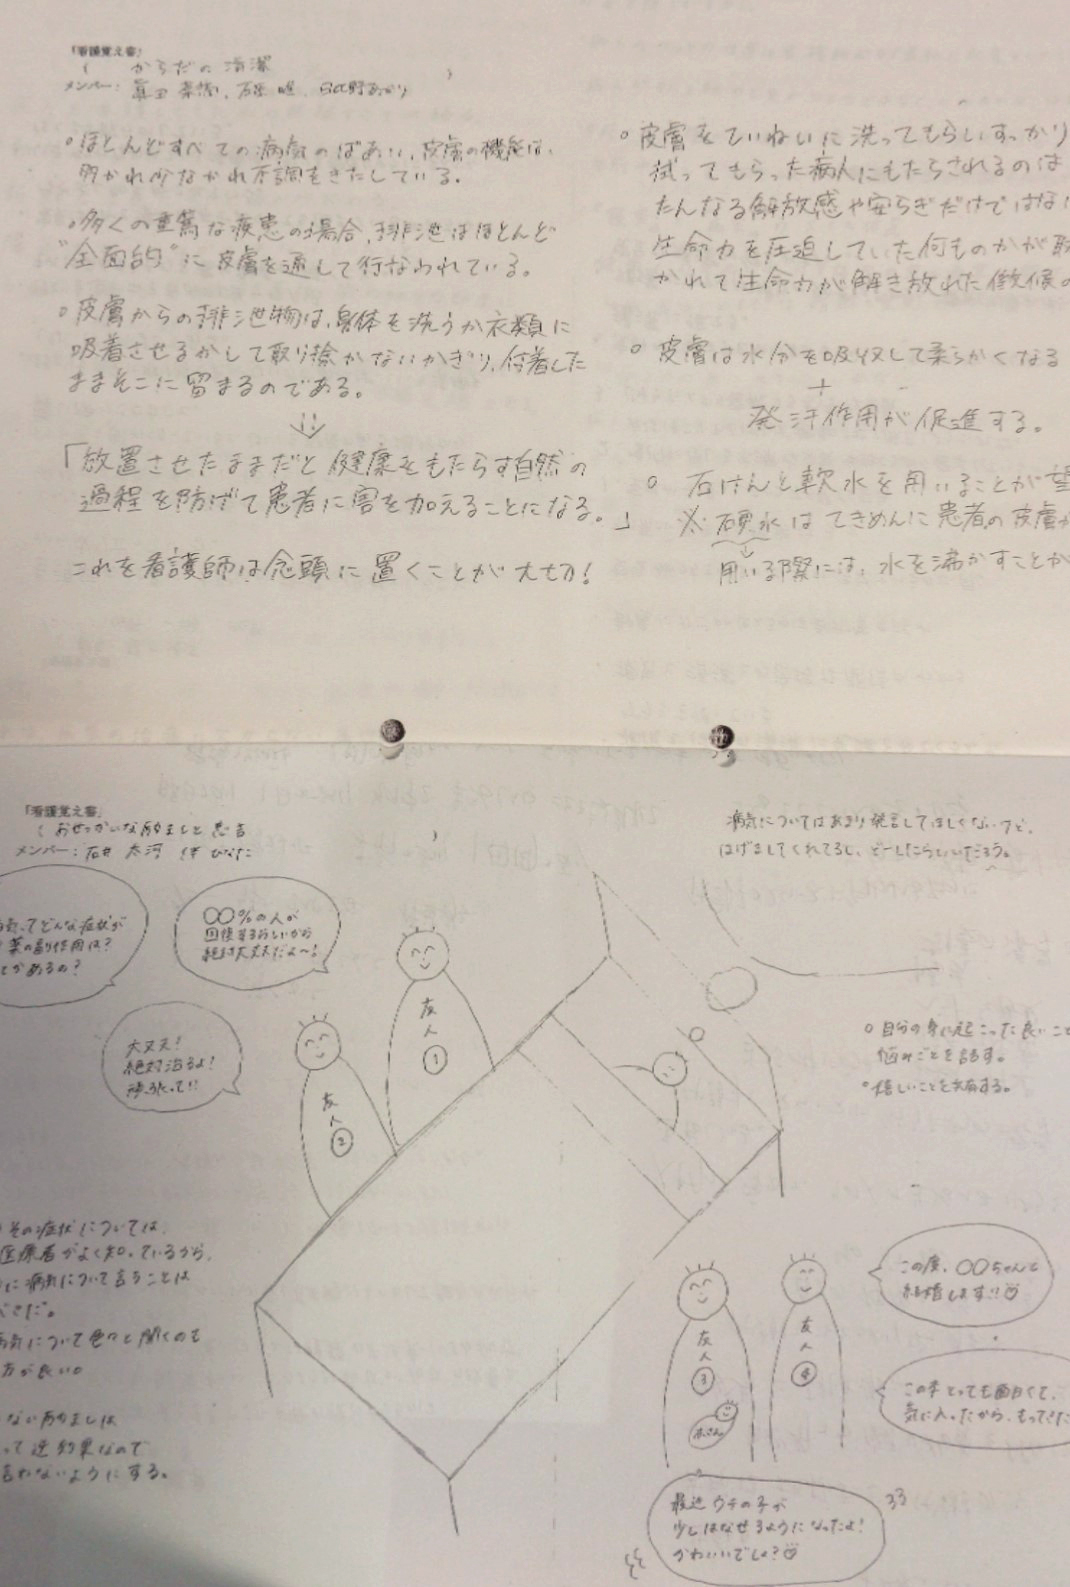 「看護覚え書」
( からだの清潔 )
メンバー:
・ほとんどすべての病気のばあい、皮膚の機能は、
多かれ少なかれ不調をきたしている。
・多くの重篤な疾患の場合、排泄はほとんど
"全面的"に皮膚を通して行なわれている。
・皮膚からの排泄物は、身体を洗うか衣類に
吸着させるかして取り除かないかぎり、付着した
ままそこに留まるのである。
「放置させたままだと健康をもたらす自然の
過程を防げて患者に害を加えることになる。」
これを看護師は念頭に置くことが大切!
・皮膚をていねいに洗ってもらいすっかり
拭ってもらった病人にもたらされるのは
たんなる解放感や安らぎだけではない
生命力を圧迫していた何ものかが取
かれて生命力が解き放れた徴候の
・皮膚は水分を吸収して柔らかくなる
+
発汗作用が促進する。
・石けんと軟水を用いることが望
※硬水はてきめんに患者の皮膚が
↓
用いる際には、水を沸かすことが
「看護覚え書」
( おせっかいな励ましと忠告 )
メンバー: 石井 大河 ひなた
病気についてはあまり発言してほしくないけど、
はげましてくれてるし、どーしたらいいだろう。
ってどんな症状が
薬の副作用は?
とかあるの?
〇〇%の人が
回復するらしいから
絶対大丈夫だよ〜!
大丈夫!
絶対治るよ!
頑張って!!
友人①
友人②
・自分の身に起こった良いこと
悩みごとを話す。
・嬉しいことを共有する。
その症状については、
医療者がよく知っているから、
に病気について言うことは
べきだ。
病気について色々と聞くのも
方が良い。
ない励ましは
って逆効果なので
言わないようにする。
友人③
赤さん
友人④
この度、〇〇ちゃんと
結婚します!!
この本とっても面白くて、
気に入ったから、もってきた
最近ウチの子が
少しはなせるようになったよ!
かわいいでしょ?